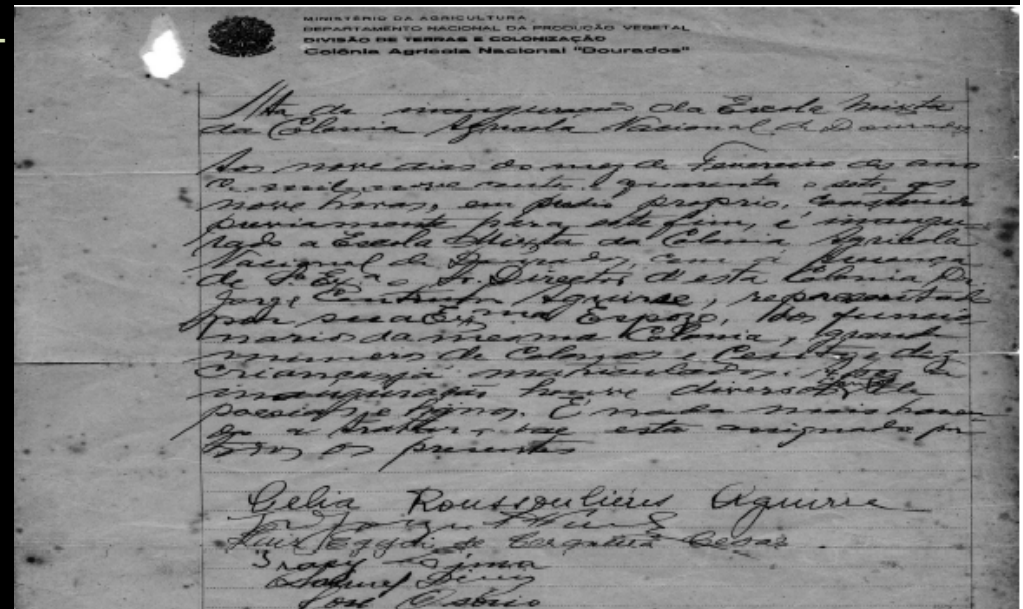 MINISTÉRIO DA AGRICULTURA
DEPARTAMENTO NACIONAL DA PRODUCÃO VEGETAL
DIVISÃO DE TERRAS E COLONIZAÇÃO
Colônia Agrícola Nacional "Dourados"
Ata da inauguração da Escola Mixta
da Colonia Agricola Nacional de Dourados
Aos nove dias do mez de Fevereiro do ano
de mil nove centos e quarenta e sete, as
nove horas, em predio proprio, construido
previamente para este fim, é inaugu-
rado a Escola Mixta da Colonia Agricola
Nacional de Dourados, com a presença
de S. Ex.ª o Sr. Director d'esta Colonia, Dr.
Jorge Aguirre, representado
por sua Exma Espoza, dos funcio
narios da mesma Colonia, grande
numero de Colonos e Cento e dez
crianças já matriculados.
inauguração houve diversos
poesias e hynos. E nada mais haven
do a tratar, vae esta assignada por
todos os presentes
Gelia Roussouliéres Aguirre
Luiz Egydio de Cerqueira Cesar
Iracy Lima
José Osório